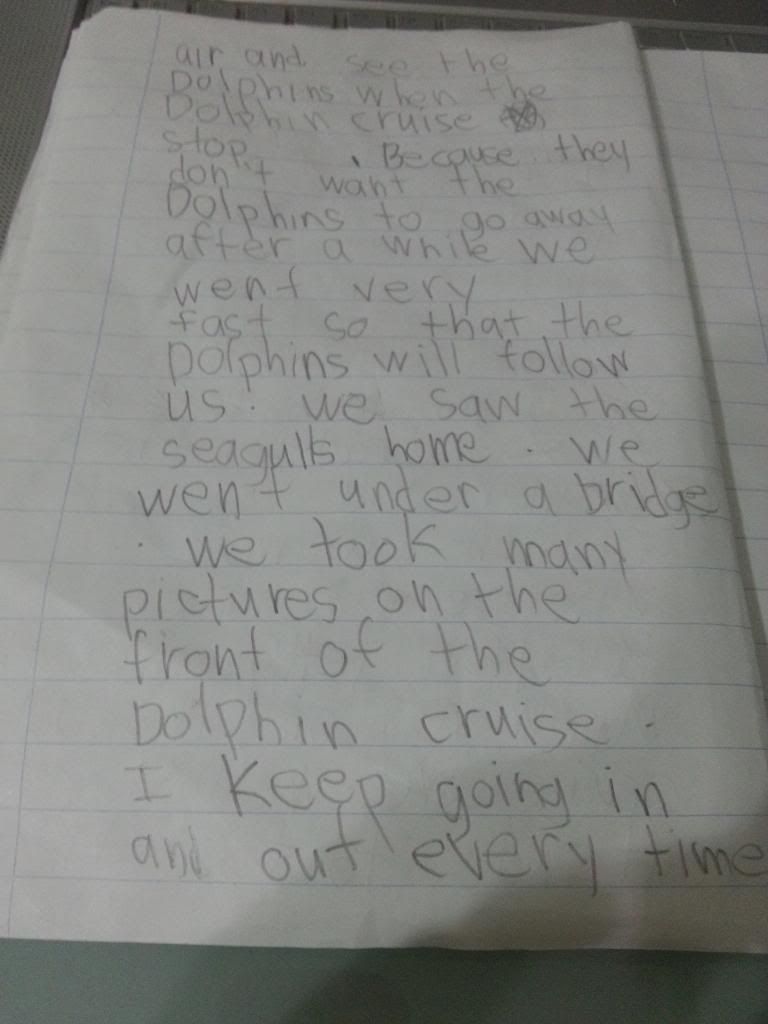 air and see the
Dolphins when the
Dolphin cruise
stop. . Because they
don't want the
Dolphins to go away
after a while we
went very
fast so that the
Dolphins will follow
us. we saw the
seagulls home. we
went under a bridge
. we took many
pictures on the
front of the
Dolphin cruise.
I keep going in
and out every time